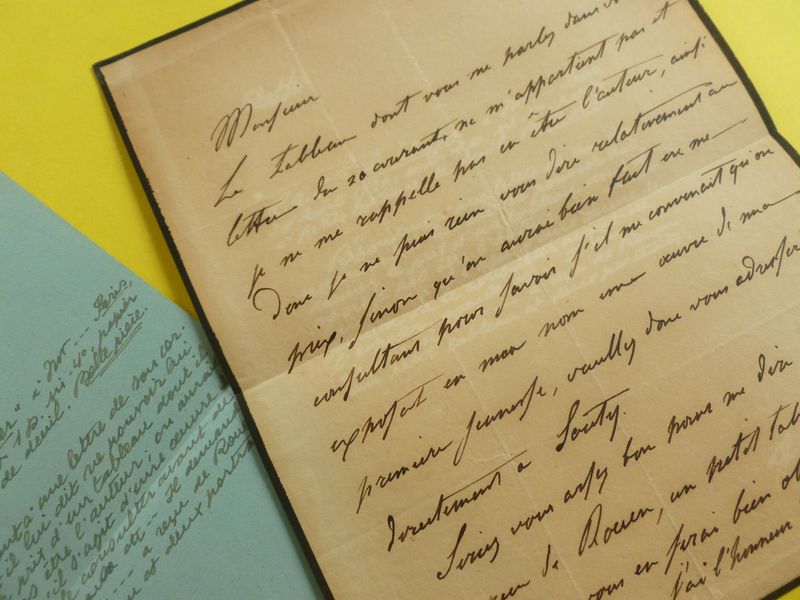 Monsieur
Le tableau dont vous me parlez dans
lettre du 20 courant, ne m'appartient pas et
je ne me rappelle pas en être l'auteur, ainsi
Donc je ne puis rien vous dire relativement au
prix, sinon qu'on aurai bien fait en me
consultant pour savoir s'il me convenait qu'on
exposat en mon nom une œuvre de ma
première jeunesse, veuillez donc vous adresser
directement a Souty.
Seriez vous assez bon pour me dire
de Rouen, un petit
vous en serai bien
j'ai l'honneur
Paris,
papier
de deuil. Belle pièce.
lettre de
il lui dit ne pouvoir lui
prix d'un tableau dont il
être l'auteur; on aurait
s'il s'agit d'une œuvre
consulter avant de
Il demande
a reçu de Rouen
et deux